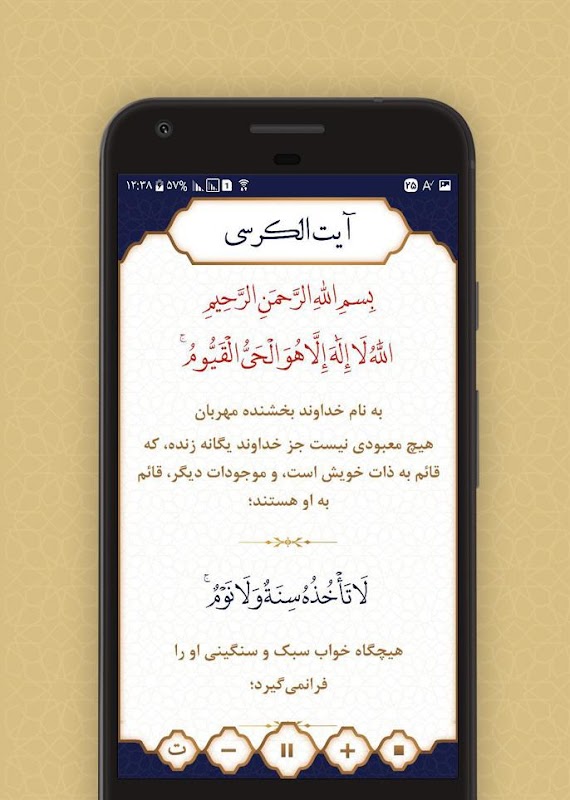 ۱۲:۳۸ ۵۷% 1 ۲۵ A
آیت الکرسی
بِسمِ اللهِ الرَّحمَنِ الرَّحِیمِ
اللهُ لَا إِلَٰهَ إِلَّا هُوَ الْحَيُّ الْقَيُّومُ ۚ
به نام خداوند بخشنده مهربان
هیچ معبودی نیست جز خداوند یگانه زنده، که
قائم به ذات خویش است، و موجودات دیگر، قائم
به او هستند؛
لَا تَأْخُذُهُ سِنَةٌ وَلَا نَوْمٌ ۚ
هیچگاه خواب سبک و سنگینی او را
فرانمی‌گیرد؛
ت − +